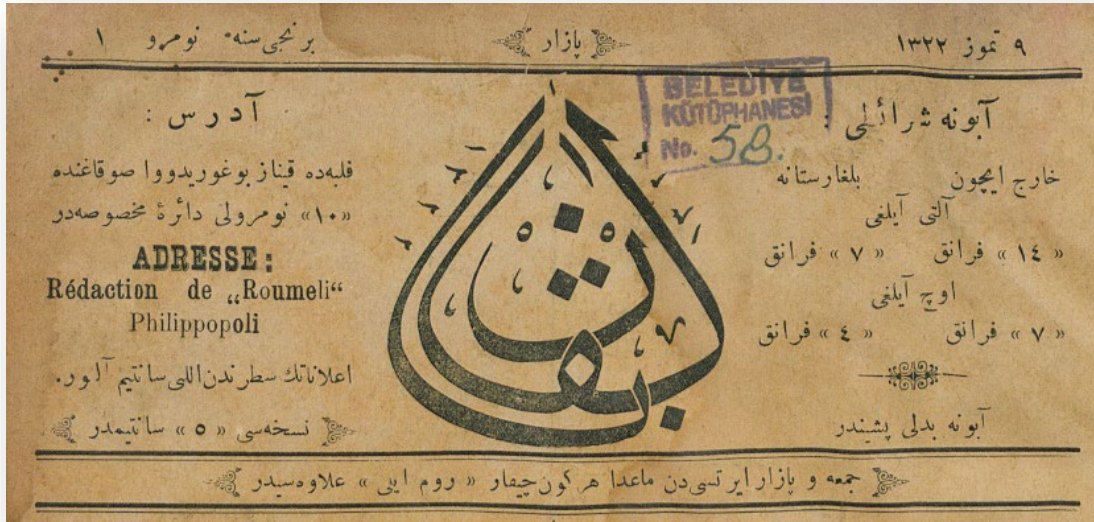 ٩ تموز ١٣٢٢
پازار
برنجی سنه نومرو ١
BELEDİYE
KÜTÜPHANESİ
No. 58.
آبونه شرائطی :
خارج ایچون بلغارستانه
آلتی آیلغی
« ١٤ » فرانق « ٧ » فرانق
اوچ آیلغی
« ٧ » فرانق « ٤ » فرانق
آبونه بدلی پشیندر
بالقان
آدرس :
فلبه‌ده قیناز بوغوریدووا صوقاغنده
«١٠» نومرولی دائرۀ مخصوصه‌در
ADRESSE :
Rédaction de „Roumeli“
Philippopoli
اعلاناتك سطرندن اللی سانتیم آلور.
نسخه‌سی « ٥ » سانتیمدر
جمعه و پازار ایرتسی‌دن ماعدا هر کون چیقار « روم ایلی » علاوه‌سیدر